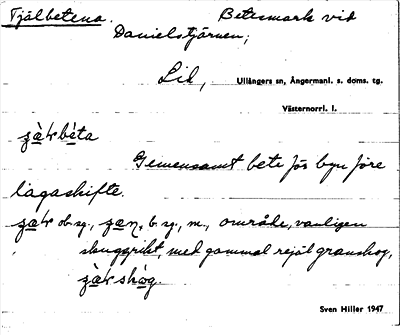 Tjälbetena. Betesmark vid
Danielstjärnen;
Lid, Ullångers sn, Ångermanl. s. doms. tg.
Västernorrl. l.
Gemensamt bete för byn före
lagaskifte.
ob. sg., b. sg., m., område, vanligen
skuggrikt, med gammal rejäl granskog,
Sven Hiller 1947